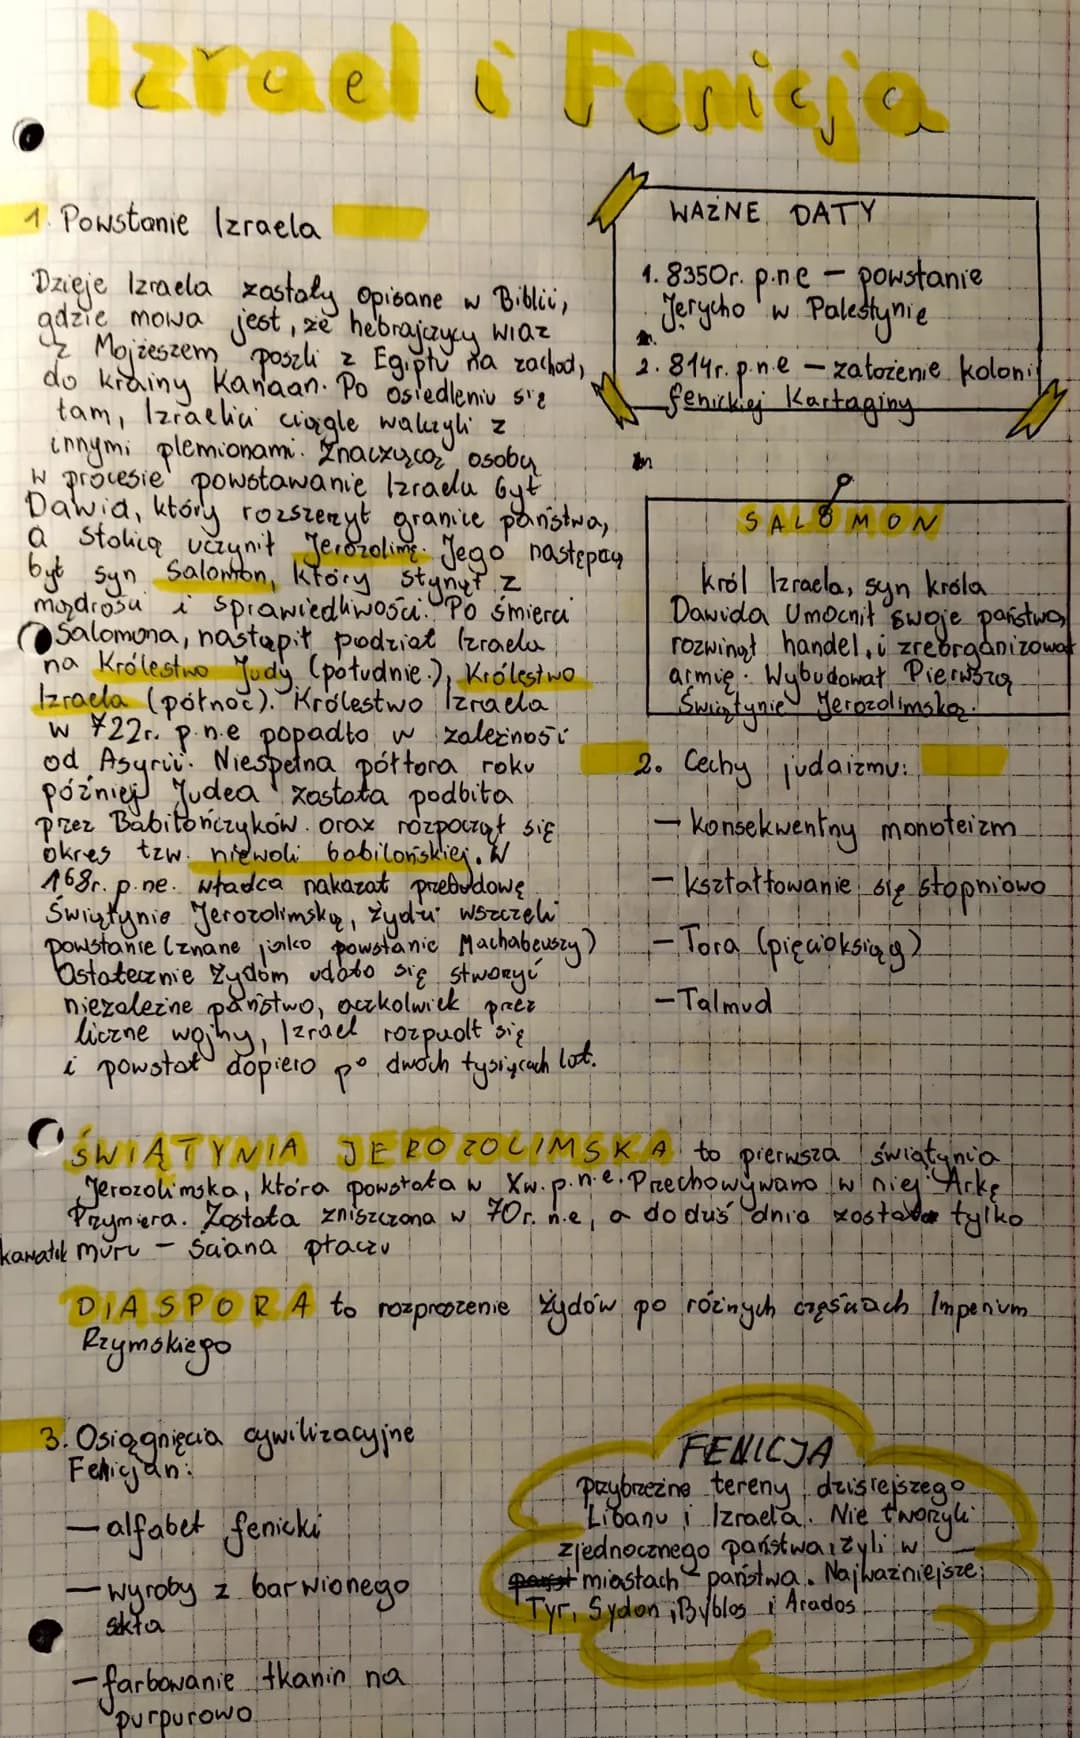 Izrael i Fenicja
1. Powstanie Izraela
Dzieje Izraela zostały opisane w Biblii,
gdzie mowa jest, że hebrajczycy wraz
z Mojżeszem poszli z Egiptu na zachód,
do krainy Kanaan. Po osiedleniu się
tam, Izraelici ciągle walczyli z
innymi plemionami. Znaczącą osobą
w procesie powstawanie Izraelu był
Dawid, który rozszerzył granice państwa,
a stolicą uczynił Jerozolimę. Jego następcą
był syn Salomon, który słynął z
mądrości i sprawiedliwości. Po śmierci
Salomona, nastąpił podział Izraela
na Królestwo Judy (południe.), Królestwo
Izraela (północ). Królestwo Izraela
w 722r. p.n.e popadło w zależność
od Asyrii. Niespełna półtora roku
później Judea została podbita
przez Babilończyków. oraz rozpoczął się
okres tzw. niewoli babilońskiej. W
168r. p.ne. władca nakazał przebudowę
Świątynie Jerozolimską, żydzi wszczęli
powstanie (znane jako powstanie Machabeuszy)
Ostatecznie Żydom udało się stworzyć
niezależne państwo, aczkolwiek przez
liczne wojny, Izrael rozpadł się
i powstał dopiero po dwóch tysiącach lat.
WAŻNE DATY
1. 8350r. p.ne – powstanie
Jerycho w Palestynie
2. 814r. p.n.e – założenie koloni
fenickiej Kartaginy
SALOMON
król Izraela, syn króla
Dawida Umocnił swoje państwo,
rozwinął handel, i zreorganizował
armię. Wybudował Pierwszą
Świątynie Jerozolimską.
2. Cechy judaizmu:
– konsekwentny monoteizm
– kształtowanie się stopniowo
– Tora (pięcioksiąg)
– Talmud
ŚWIĄTYNIA JEROZOLIMSKA to pierwsza świątynia
Jerozolimska, która powstała w Xw. p.n.e. Przechowywano w niej Arkę
Przymiera. Została zniszczona w 70r. n.e, a do duś dnia została tylko
kawałek muru – ściana płaczu
DIASPORA to rozproszenie Żydów po różnych częściach Imperium
Rzymskiego
3. Osiągnięcia cywilizacyjne
Fenicjan:
– alfabet fenicki
– wyroby z barwionego
szkła
– farbowanie tkanin na
purpurowo
FENICJA
przybrzeżne tereny dzisiejszego
Libanu i Izraela. Nie tworzyli
zjednoczonego państwa, żyli w
miastach – państwa. Najważniejsze:
Tyr, Sydon, Byblos i Arados